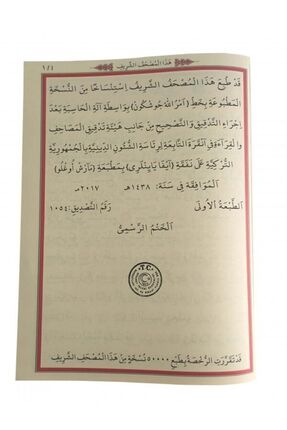 هَذَا الْمُصْحَفُ الشَّرِيفُ
قَدْ طُبِعَ هَذَا الْمُصْحَفُ الشَّرِيفُ اِسْتِنْسَاخًا مِنَ النُّسْخَةِ
الْمَطْبُوعَةِ بِخَطِّ (اَمْرُ اللّٰه جُوشْكُونْ) بِوَاسِطَةِ آلَةِ الْحَاسِبَةِ بَعْدَ
اِجْرَاءِ التَّدْقِيقِ وَالتَّصْحِيحِ مِنْ جَانِبِ هَيْئَةِ تَدْقِيقِ الْمَصَاحِفِ
وَالْقِرَاءَةِ فِي اَنْقَرَةَ التَّابِعَةِ لِرِئَاسَةِ الشُّئُونِ الدِّينِيَّةِ بِالْجُمْهُورِيَّةِ
التُّرْكِيَّةِ عَلَى نَفَقَةِ (اَيْفَا يَايِنْلَرِي) بِمَطْبَعَةِ (مَارْسْ اُوغْلُو)
اَلْمُوَافَقَة فِي سَنَة: ١٤٣٨هـ ٢٠١٧مـ
اَلطَّبْعَةُ الْاُولَى رَقَمُ التَّصْدِيقِ: ١٠٥٤
اَلْخَتْمُ الرَّسْمِيُّ
T.C.
قَدْ تَقَرَّرَتِ الرُّخْصَةُ بِطَبْعِ ٥٠٠٠٠ نُسْخَةٍ مِنْ هَذَا الْمُصْحَفِ الشَّرِيفِ